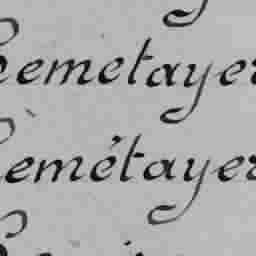 Lemetayer
Lemétayer